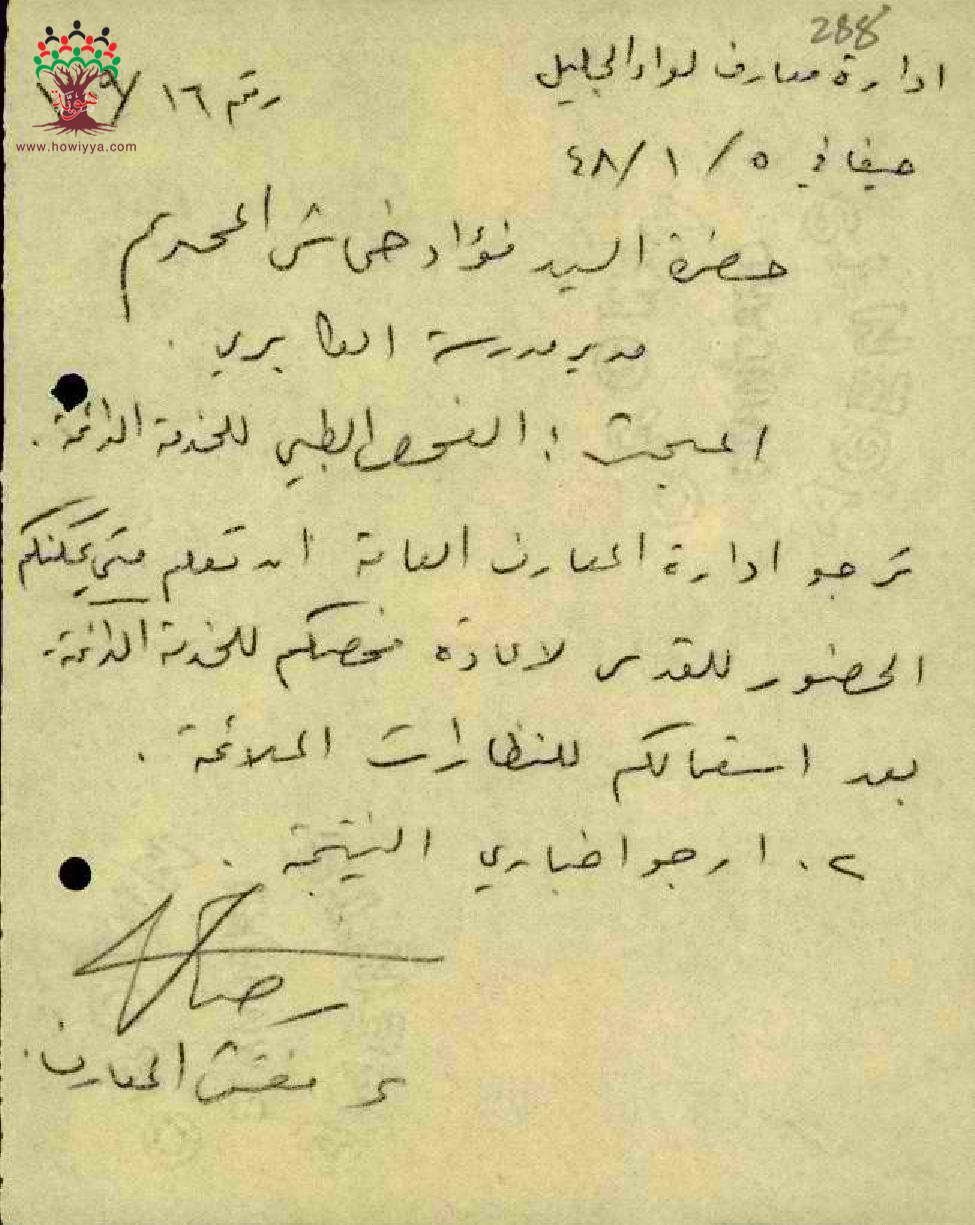 288
ادارة معارف لواء الجليل
رقم ١٦/
حيفا في ٥/١/٤٨
هوية
www.howiyya.com
حضرة السيد فؤاد خماش المحترم
مدير مدرسة الكابري .
المبحث : الفحص الطبي للخدمة الدائمة .
ترجو ادارة المعارف العامة ان تعلم متى يمكنكم
الحضور للقدس لاعادة فحصكم للخدمة الدائمة
بعد استعمالكم للنظارات الملائمة .
٢. ارجو اخباري النتيجة .
ع مفتش المعارف .